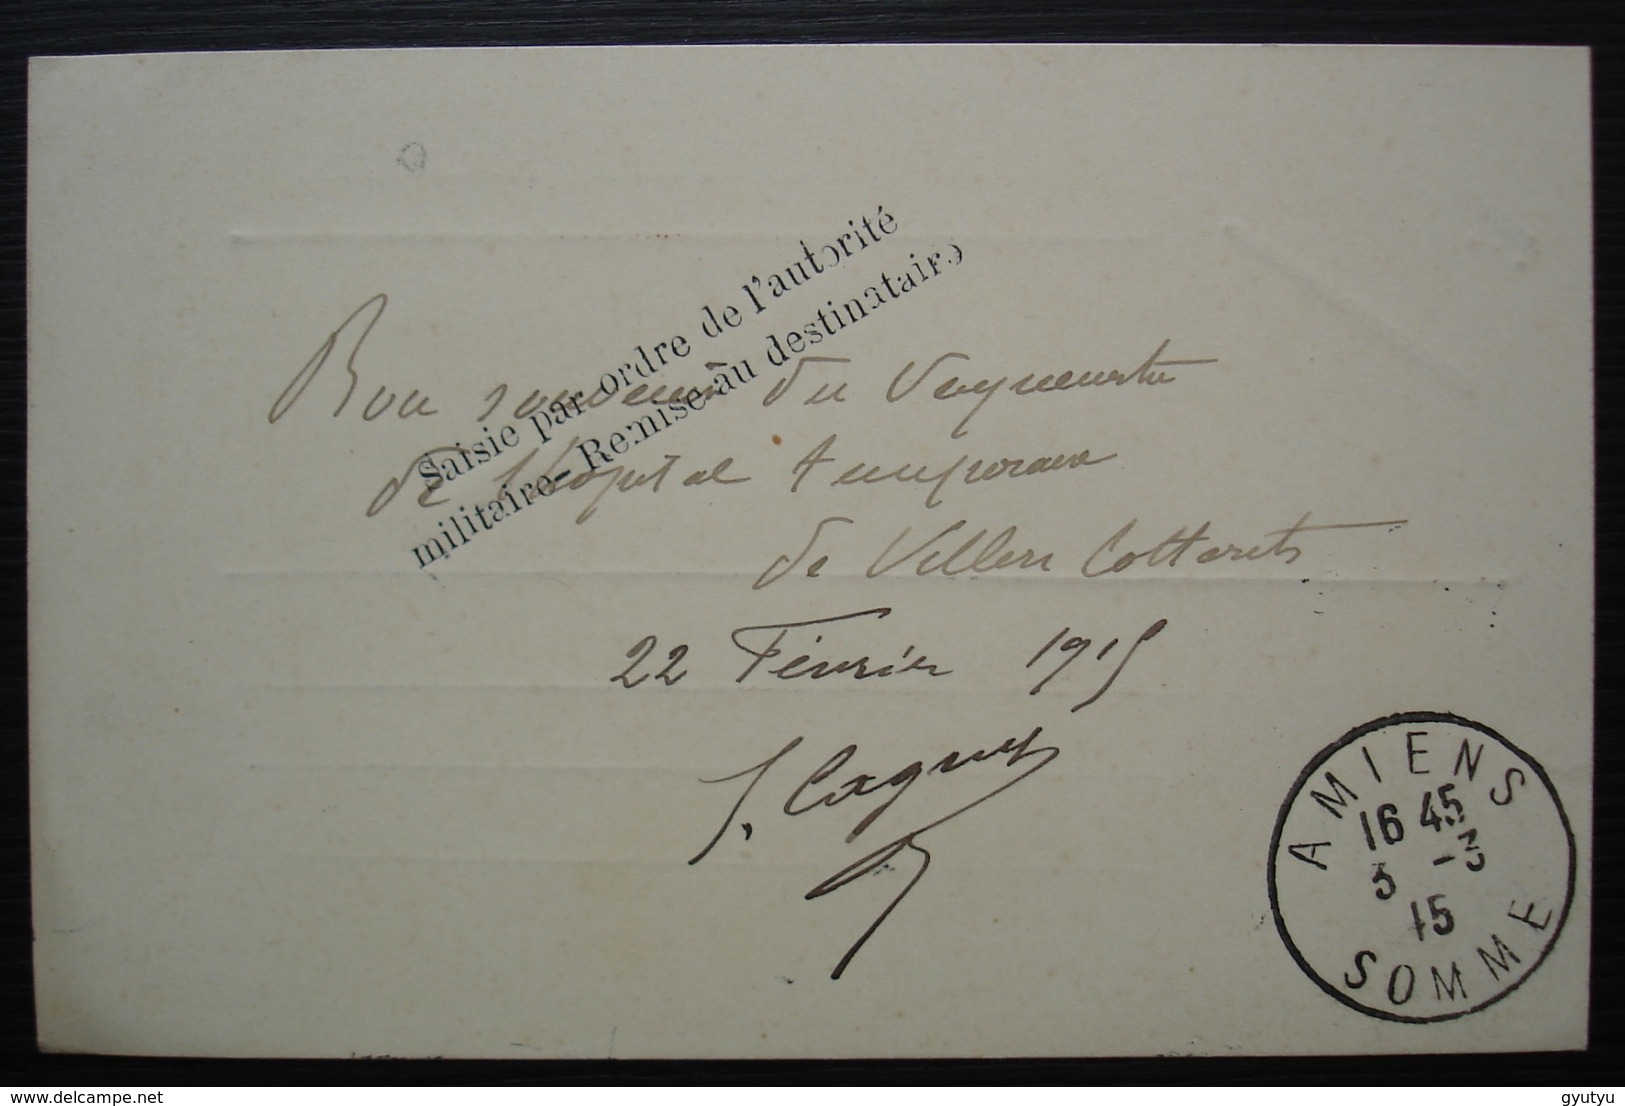 Saisie par ordre de l'autorité
militaire - Remise au destinataire
Bon souvenir du Vaguemestre
de l'hôpital temporaire
de Villers Cotterets
22 Février 1915
AMIENS
16 45
3 -3
15
SOMME
delcampe.net
gyutyu